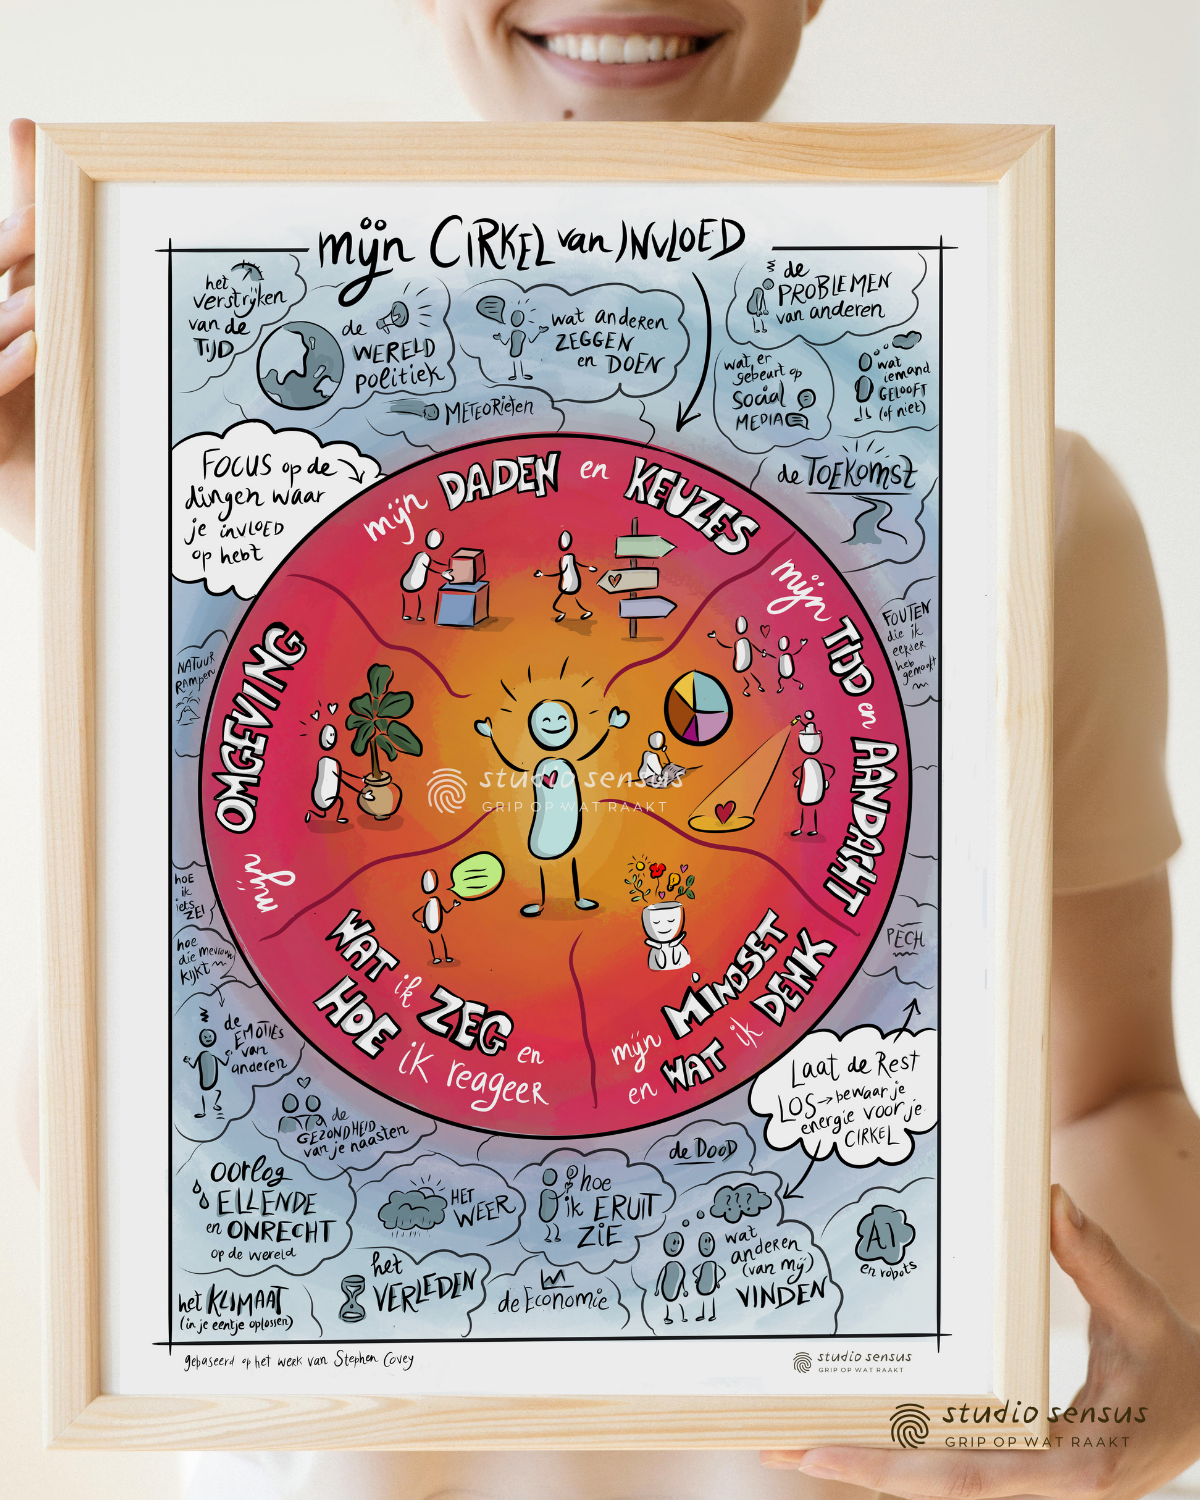 mijn CIRKEL van INVLOED
het
verstrijken
van de
TIJD
de
WERELD
politiek
wat anderen
ZEGGEN
en DOEN
de
PROBLEMEN
van anderen
wat er
gebeurt op
Social
MEDIA
wat
iemand
GELOOFT
(of niet)
METEORieten
FOCUS op de
dingen waar
je invLOED
op hebt
de TOEKomst
mijn DADEN en KEUZES
mijn TIJD en AANDACHT
FOUTEN
die ik
eerder
heb
gemaakt
NATUUR
RAMPEN
mijn OMGEVING
studio sensus
GRIP OP WAT RAAKT
WAT ik ZEG en
HOE ik reageer
mijn MINDSET
en WAT ik DENK
hoe
ik
iets
ZEI
hoe
die mevrouw
KIJKT
PECH
de
EMOTIES
van
anderen
de
GEZONDHEID
van je naasten
Laat de Rest
LOS → bewaar je
energie voor je
CIRKEL
oorlog
ELLENDE
en ONRECHT
op de wereld
HET
WEER
hoe
ik ERUIT
ZIE
de DooD
???
wat
anderen
(van mij)
VINDEN
AI
en robots
het KLIMAAT
(in je eentje oplossen)
het
VERLEDEN
de Economie
gebaseerd op het werk van Stephen Covey
studio sensus
GRIP OP WAT RAAKT
studio sensus
GRIP OP WAT RAAKT